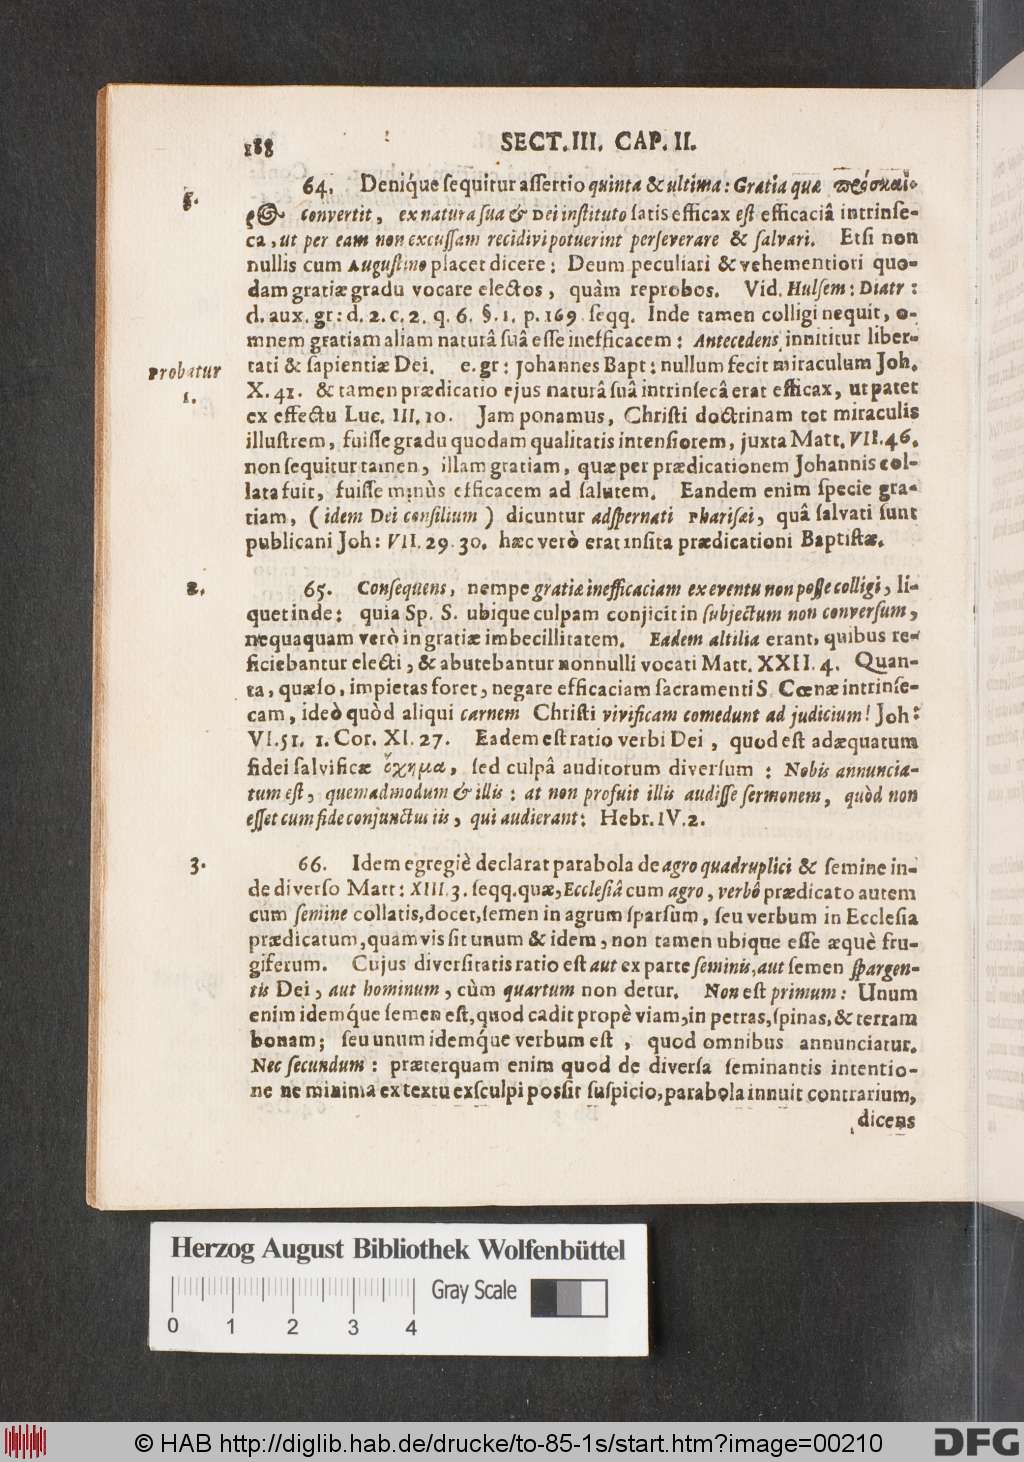 188
SECT. III. CAP. II.
5.
64. Deniq́ue sequitur assertio quinta & ultima: Gratia quæ πρόσκαι-
ρ@ convertit, ex natura sua & Dei instituto satis efficax est efficaciâ intrinse-
ca, ut per eam non excussam recidivi potuerint perseverare & salvari. Etsi non
nullis cum Augustino placet dicere: Deum peculiari & vehementiori quo-
dam gratiæ gradu vocare electos, quàm reprobos. Vid. Hulsem: Diatr:
d. aux. gr: d. 2. c. 2. q. 6. §. 1. p. 169 seqq. Inde tamen colligi nequit, o-
mnem gratiam aliam naturâ suâ esse inefficacem: Antecedens innititur liber-
Probatur
tati & sapientiæ Dei. e. gr: Johannes Bapt: nullum fecit miraculum Joh.
1.
X. 41. & tamen prædicatio ejus naturâ suâ intrinsecâ erat efficax, ut patet
ex effectu Luc. III. 10. Jam ponamus, Christi doctrinam tot miraculis
illustrem, fuisse gradu quodam qualitatis intensiorem, juxta Matt. VII. 46.
non sequitur tamen, illam gratiam, quæ per prædicationem Johannis col-
lata fuit, fuisse minùs efficacem ad salutem. Eandem enim specie gra-
tiam, (idem Dei consilium) dicuntur adspernati Pharisæi, quâ salvati sunt
publicani Joh: VII. 29. 30. hæc verò erat insita prædicationi Baptistæ.
2.
65. Consequens, nempe gratiæ inefficaciam ex eventu non posse colligi, li-
quet inde: quia Sp. S. ubique culpam conjicit in subjectum non conversum,
nequaquam verò in gratiæ imbecillitatem. Eadem altilia erant, quibus re-
ficiebantur electi, & abutebantur nonnulli vocati Matt. XXII. 4. Quan-
ta, quæso, impietas foret, negare efficaciam sacramenti S. Cœnæ intrinse-
cam, ideò quòd aliqui carnem Christi vivificam comedunt ad judicium! Joh:
VI. 51. 1. Cor. XI. 27. Eadem est ratio verbi Dei, quod est adæquatum
fidei salvificæ ὄχημα, sed culpâ auditorum diversum: Nobis annuncia-
tum est, quemadmodum & illis: at non profuit illis audisse sermonem, quòd non
esset cum fide conjunctus iis, qui audierant: Hebr. IV. 2.
3.
66. Idem egregiè declarat parabola de agro quadruplici & semine in-
de diverso Matt: XIII. 3. seqq. quæ, Ecclesiâ cum agro, verbô prædicato autem
cum semine collatis, docet, semen in agrum sparsum, seu verbum in Ecclesia
prædicatum, quamvis sit unum & idem, non tamen ubique esse æquè fru-
giferum. Cujus diversitatis ratio est aut ex parte seminis, aut semen spargen-
tis Dei, aut hominum, cùm quartum non detur. Non est primum: Unum
enim idemq́ue semen est, quod cadit propè viam, in petras, spinas, & terram
bonam; seu unum idemq́ue verbum est, quod omnibus annunciatur.
Nec secundum: præterquam enim quod de diversa seminantis intentio-
ne ne minima ex textu exsculpi possit suspicio, parabola innuit contrarium,
dicens
Herzog August Bibliothek Wolfenbüttel
Gray Scale
0 1 2 3 4
© HAB http://diglib.hab.de/drucke/to-85-1s/start.htm?image=00210
DFG